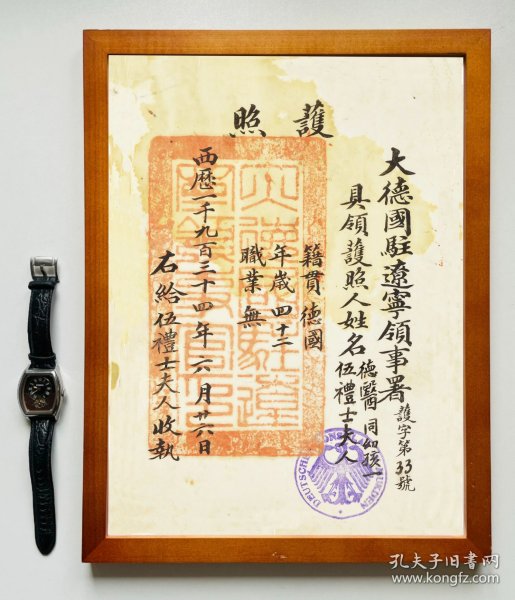 護照
大德國駐遼寧領事署 護字第33號
具領護照人姓名
德醫 同幼孩一
伍禮士夫人
籍貫 德國
年歲 四十二
職業 無
西歷一千九百三十四年六月廿六日
右給伍禮士夫人收執
孔夫子旧书网
www.kongfz.com